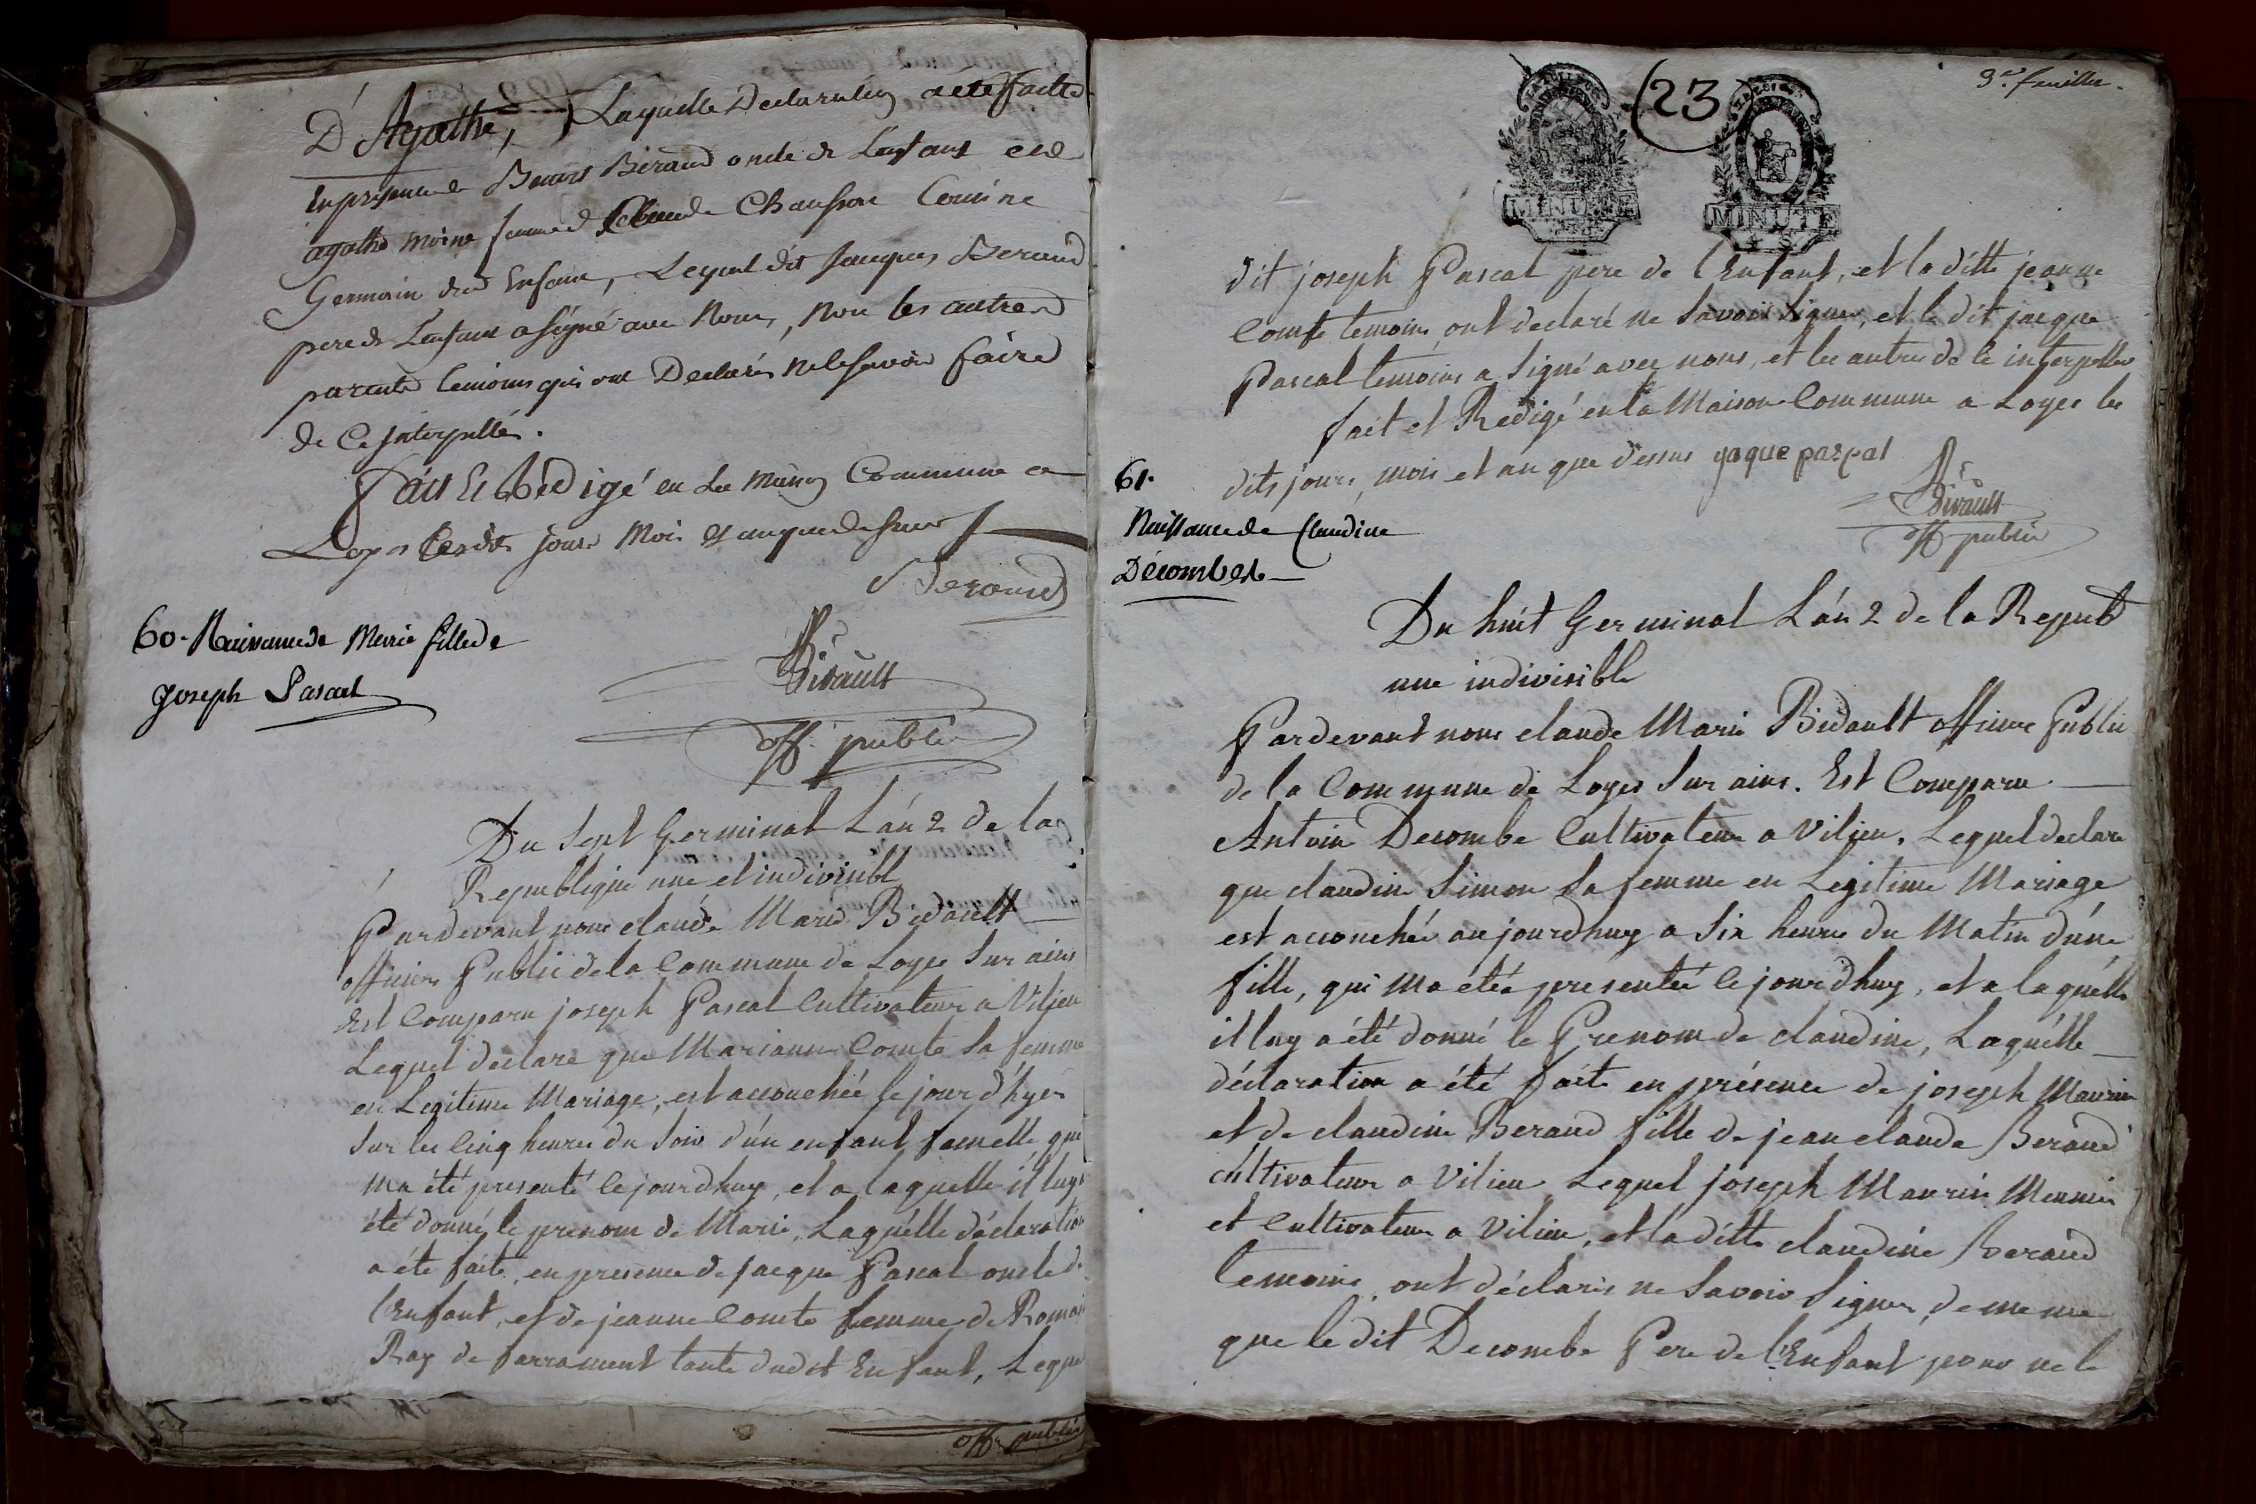 D'Agathe, Laquelle Declaration a été faitte
En présence de Benoit Béraud oncle de L'enfant et d
agathe moine femme d Claude Chanssore Cousine
Germain dud Enfant, Lequel dit Jacques Beraud
pere de L'enfant a signé avec Nous, Non les autres
parents temoins qui ont Declarés ne le savoir faire
de Ce Interpellés.
Fait Et Rédigé en La maison Commune a
Loyes Lesdits jours Mois et an que dessus
Beraud
60. Naissance de Marie fille de
Joseph Pascal
Bidault
off. public
Du Sept Germinal L'an 2 de la
Republique une et indivisibl
Pardevant nous claude Marie Bidault
officier Public de la Commune de Loyes Sur ains
Est Comparu joseph Pascal Cultivateur a Viljeu
Lequel declare que Marianne Comte Sa femme
en Legitime Mariage, est accouchéé le jour d'hyer
Sur les Cinq heures du Soir d'ún enfant femelle qui
m'a été présenté Cejourdhuy, et a laquelle il luy
été donné le prenom de Marie, Laquélle déclaration
a été faite, en presence de Jacque Pascal oncle de
l'Enfant, et de jeanne Comte femme de Romai
Ray de tante dudit Enfant, Leque
off. public
3e. feuillet.
(23)
MINUTE
MINUTE
4 S
dit joseph Pascal pere de l'Enfant, et la ditte jeanne
Comte temoins, ont declaré ne Savoir Signer, et le dit jacque
Pascal temoins a Signé avec nous, et les autres de ce interpellés
fait et Redigé en la Maison Commune a Loyes les
dits jours, mois et an que dessus jaque pascal
Bidault
off. public
61.
Naissance de Claudine
Décombes
Du huit Germinal L'án 2 de la Repub
une indivisible
Pardevant nous claude Marie Bidault officier Public
de la Commune de Loyes Sur ains. Est Comparu
Antoin Decombe Cultivateur a Viljeu. Lequel declare
que claudine Simon Sa femme en Legitime Mariage
est accouchée aujourdhuy a Six heures du Matin d'úne
fille, qui ma etée presentée Cejourdhuy, et a laquélle
il luy a été donné le Prenom de claudine, Laquélle
déclaration a été faite en présence de joseph Maurin
et de claudine Beraud fille de jean claude Beraud
cultivateur a Vilieu Lequel joseph Maurin
et Cultivateur a Vilieu, et la ditte claudine Beraud
temoins, ont déclarés ne Savoir Signer, de meme
que le dit Decombe Pere de l'Enfant pour ne le